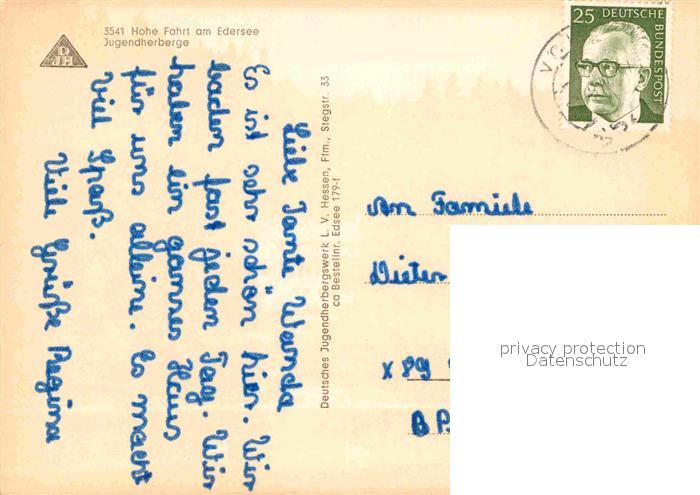 3541 Hohe Fahrt am Edersee
Jugendherberge
DJH
Liebe Tante Wanda
Es ist sehr schön hier. Wir
baden fast jeden Tag. Wir
haben ein ganzes Haus
für uns alleine. Es macht
viel Spaß.
Viele Grüße Regina
Deutsches Jugendherbergswerk L. V. Hessen, Ffm., Stegstr. 33
ca Bestellnr. Edsee 179-f
25 DEUTSCHE
BUNDESPOST
An Familie
Dieter
X 89
privacy protection
Datenschutz